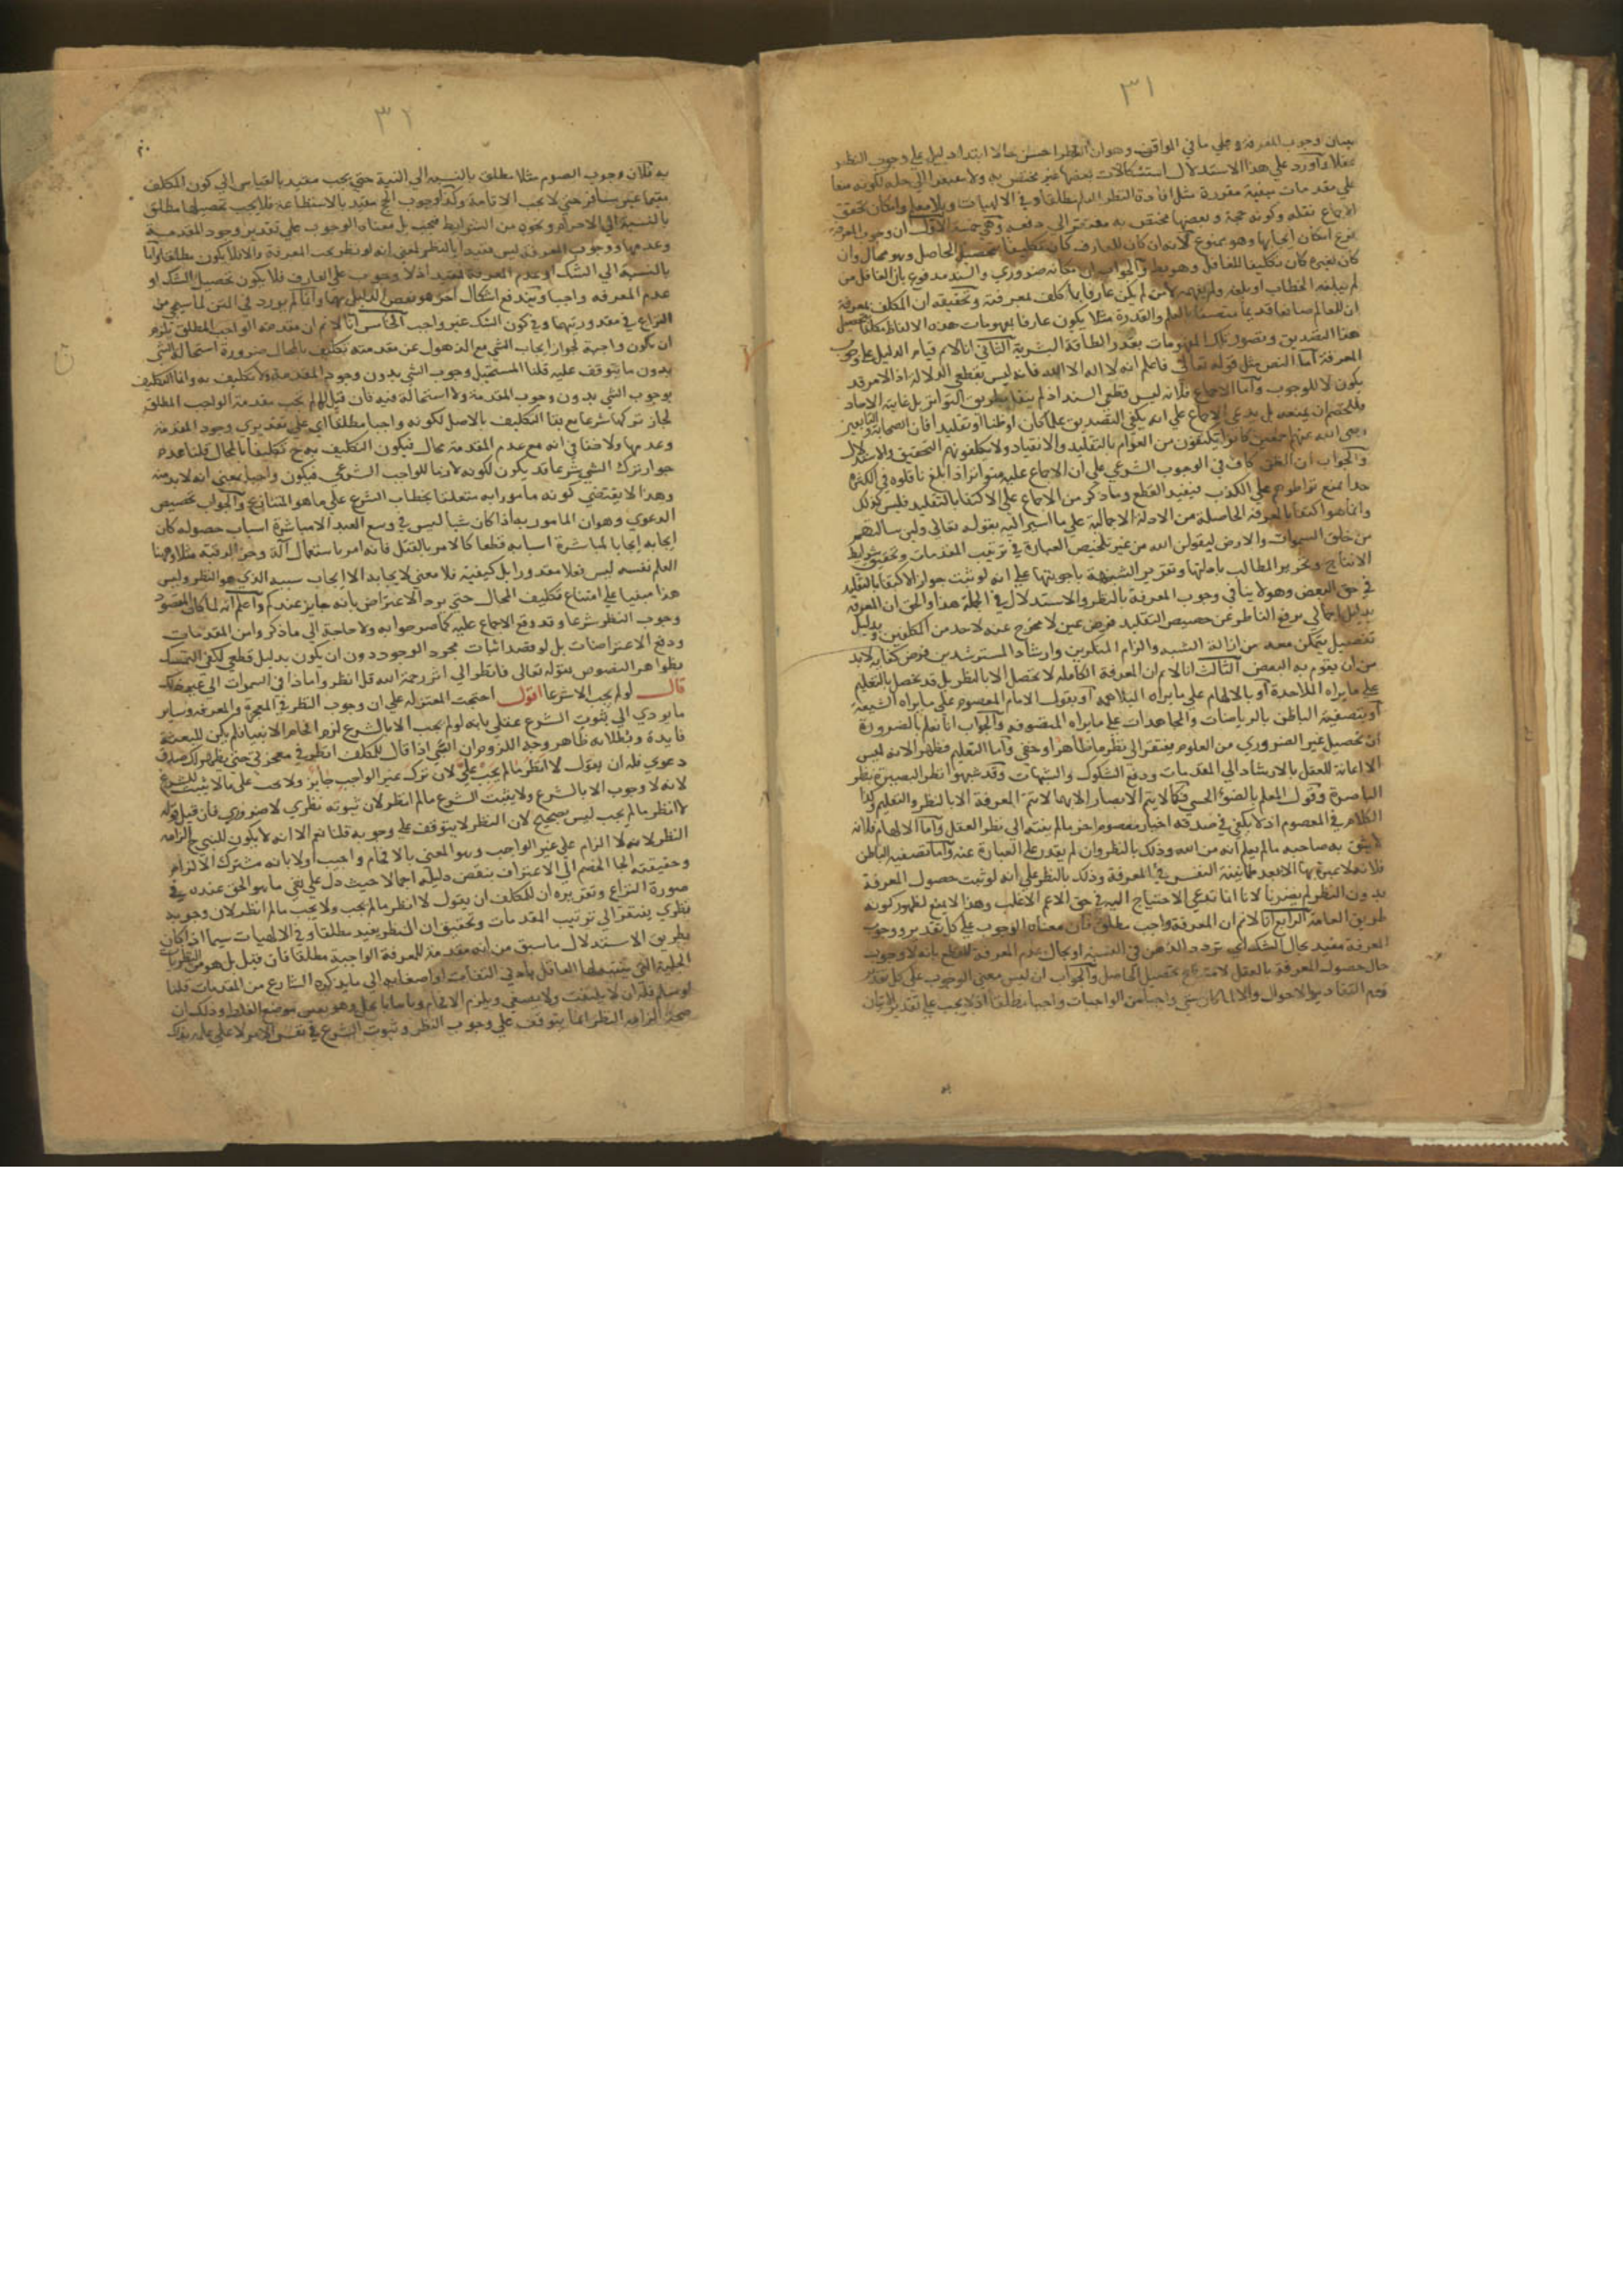 ٣١
بيان وجوب المعرفة وعلي ما في المواقف وهو ان النظر احسن حالا ابتدا دليل علي وجوب النظر
عقلا واورد علي هذا الاستدلال استشكالات بعضها غير مختص به ولا مفتقر الي حله لكونه منعا
علي مقدمات مبينة مقررة مثل افادة النظر العلم مطلقا وفي الالهيات وبلا معلم وامكان تحقق
الاجماع ونقله وكونه حجة وبعضها مختص به مفتقر الي دفعه وهي خمسة الاول ان وجوب المعرفة
فرع امكان ايجابها وهو ممنوع لانه ان كان للعارف كان تكليفا بتحصيل الحاصل وهو محال وان
كان لغيره كان تكليفا للغافل وهو بط والجواب ان امكانه ضروري والسند مدفوع بان الغافل من
لم يبلغه الخطاب او بلغه ولم يفهمه لا من لم يكن عارفا بما كلف بمعرفته وتحقيقه ان المكلف بمعرفة
ان للعالم صانعا قديما متصفا بالعلم والقدرة مثلا يكون عارفا بمفهومات هذه الالفاظ مكلفا بتحصيل
هذا التصديق وبتصور تلك المفهومات بقدر الطاقة البشرية الثاني انا لانم قيام الدليل علي وجوب
المعرفة اما النص مثل قوله تعالي فاعلم انه لا اله الا الله فانه ليس بقطعي الدلالة اذ الامر قد
يكون لا للوجوب واما الاجماع فلانه ليس قطعي السند اذ لم ينقل بطريق التواتر بل غايته الاحاد
وللخصم ان يمنعه بل يدعي الاجماع علي انه يكفي التصديق علما كان او ظنا او تقليدا فان الصحابة والتابعين
رضي الله عنهم اجمعين كانوا يكتفون من العوام بالتقليد والانقياد ولا يكلفونهم التحقيق والاستدلال
والجواب ان الظن كاف في الوجوب الشرعي علي ان الاجماع عليه متواتر اذ بلغ ناقلوه في الكثرة
حدا يمنع تواطؤهم علي الكذب فيفيد القطع وما ذكر من الاجماع علي الاكتفا بالتقليد فليس كذلك
وانما هو اكتفا بالمعرفة الحاصلة من الادلة الاجمالية علي ما اشير اليه بقوله تعالي ولين سالتهم
من خلق السموات والارض ليقولن الله من غير تلخيص العبارة في ترتيب المقدمات وتحقيق شرايط
الانتاج وتحرير المطالب بادلتها وتقرير الشبهة باجوبتها علي انه لو ثبت جواز الاكتفا بالتقليد
في حق البعض فهو لا ينافي وجوب المعرفة بالنظر والاستدلال في الجملة هذا والحق ان المعرفة
بدليل اجمالي يرفع الناظر عن حضيض التقليد فرض عين لا مخرج عنه لاحد من المكلفين وبدليل
تفصيلي يتمكن معه من ازالة الشبه والزام المنكرين وارشاد المسترشدين فرض كفاية لا بد
من ان يقوم به البعض الثالث انا لانم ان المعرفة الكاملة لا تحصل الا بالنظر بل قد يحصل بالتعليم
علي ما يراه الملاحدة او بالالهام علي ما يراه البراهمة او بقول الامام المعصوم علي ما يراه الشيعة
او بتصفية الباطن بالرياضات والمجاهدات علي ما يراه المتصوفة والجواب انا نعلم بالضرورة
ان تحصيل غير الضروري من العلوم يفتقر الي نظر ما ظاهر او خفي واما التعليم فظاهر لانه ليس
الا اعانة للعقل بالارشاد الي المقدمات ودفع الشكوك والشبهات وقد شبهوا نظر البصيرة بنظر
الباصرة وقول المعلم بالضوء الحسي فكما لا يتم الابصار الا بهما لا يتم المعرفة الا بالنظر والتعليم وكذا
الكلام في المعصوم اذ لا يكفي في صدقه اخبار معصوم اخر ما لم ينته الي نظر العقل واما الالهام فلانه
لا يثق به صاحبه ما لم يعلم انه من الله وذلك بالنظر وان لم يقدر علي العبارة عنه واما تصفية الباطن
فلانه لا عبرة بها الا بعد طمانينة النفس في المعرفة وذلك بالنظر علي انه لو ثبت حصول المعرفة
بدون النظر لم يضرنا لانا انما ندعي الاحتياج اليه في حق الاعم الاغلب وهذا لا يمنع لظهور كونه
طريق العامة الرابع انا لانم ان المعرفة واجب مطلق فان معناه الوجوب علي كل تقدير ووجوب
المعرفة مقيد بحال الشك اي تردد الذهن في النسبة او بحال عدم المعرفة للقطع بانه لا وجوب
حال حصول المعرفة بالفعل لامتناع تحصيل الحاصل والجواب ان ليس معني الوجوب علي كل تقدير
عموم التقادير والاحوال والا لما كان شي واجبا من الواجبات واجبا مطلقا اذ لا يجب علي تقدير الاتيان
٣٢
به فلان وجوب الصوم مثلا مطلق بالنسبة الي النية حتي يجب مقيد بالقياس الي كون المكلف
مقيما غير مسافر حتي لا يجب الاقامة وكذا وجوب الحج مقيد بالاستطاعة فلا يجب تحصيلها مطلق
بالنسبة الي الاحرام ونحوه من الشرايط فيجب بل معناه الوجوب علي تقدير وجود المقدمة
وعدمها ووجوب المعرفة ليس مقيدا بالنظر بمعني انه لو نظر يجب المعرفة والا فلا يكون مطلقا واما
بالنسبة الي الشك او عدم المعرفة فمقيد اذ لا وجوب علي العارف فلا يكون تحصيل الشك او
عدم المعرفة واجبا ويندفع اشكال اخر هو نقض الدليل بهما وانما لم يورد في المتن لما سيجي من
النزاع في مقدوريتهما وفي كون الشك غير واجب الخامس انا لا نم ان مقدمة الواجب المطلق يلزم
ان يكون واجبة لجواز ايجاب الشي مع الذهول عن مقدمته تكليف بالمحال ضرورة استحالة الشي
بدون ما يتوقف عليه قلنا المستحيل وجوب الشي بدون وجود المقدمة ولا تكليف به وانما التكليف
بوجوب الشي بدون وجوب المقدمة ولا استحالة فيه فان قيل لو لم يجب مقدمة الواجب المطلق
لجاز تركها شرعا مع بقا التكليف بالاصل لكونه واجبا مطلقا اي علي تقديري وجود المقدمة
وعدمها ولا خفا في انه مع عدم المقدمة محال فيكون التكليف به ح تكليفا بالمحال قلنا عدم
جواز ترك الشي شرعا قد يكون لكونه لازما للواجب الشرعي فيكون واجبا بمعني انه لا بد منه
وهذا لا يقتضي كونه مامورا به متعلقا بخطاب الشرع علي ما هو المتنازع والجواب تخصيص
الدعوي وهو ان المامور به اذا كان شيا ليس في وسع العبد الا مباشرة اسباب حصوله كان
ايجابه ايجابا لمباشرة اسبابه قطعا كالامر بالقتل فانه امر باستعمال الآلة وحز الرقبة مثلا وهنا
العلم نفسه ليس فعلا مقدورا بل كيفية فلا معني لايجابه الا ايجاب سببه الذي هو النظر وليس
هذا مبنيا علي امتناع تكليف المحال حتي يرد الاعتراض بانه جايز عندكم واعلم انه لما كان المقصود
وجوب النظر شرعا وقد وقع الاجماع عليه كما صرحوا به ولا حاجة الي ما ذكر وا من المقدمات
ودفع الاعتراضات بل لو قصد اثبات مجرد الوجود دون ان يكون بدليل قطعي لكفي التمسك
بظواهر النصوص بقوله تعالي فانظر الي اثر رحمة الله قل انظروا ماذا في السموات الي غير ذلك
قال لو لم يجب الا شرعا اقول احتجت المعتزلة علي ان وجوب النظر في المعجزة والمعرفة وساير
ما يودي الي ثبوت الشرع عقلي بانه لو لم يجب الا بالشرع لزم افحام الانبيا فلم يكن للبعثة
فايدة وبطلانه ظاهر وجه اللزوم ان النبي اذا قال للمكلف انظر في معجزتي حتي يظهر لك صدق
دعوي فله ان يقول لا انظر ما لم يجب علي لان ترك غير الواجب جايز ولا يجب علي ما لا يثبت الشرع
لانه لا وجوب الا بالشرع ولا يثبت الشرع ما لم انظر لان ثبوته نظري لا ضروري فان قيل قوله
لا انظر ما لم يجب ليس بصحيح لان النظر لا يتوقف علي وجوبه قلنا نعم الا انه لا يكون للنبي ح الزامه
النظر لانه لا الزام علي غير الواجب وهو المعني بالافحام واجيب اولا بانه مشترك الالزام
وحقيقته الجا الخصم الي الاعتراف بنقض دليله اجمالا حيث دل علي نفي ما هو الحق عنده في
صورة النزاع وتقريره ان للمكلف ان يقول لا انظر ما لم يجب ولا يجب ما لم انظر لان وجوبه
نظري يفتقر الي ترتيب المقدمات وتحقيق ان النظر يفيد مطلقا وفي الالهيات سيما اذا كان
بطريق الاستدلال ما سبق من انه مقدمة للمعرفة الواجبة مطلقا فان قيل بل هو من النظريات
الجلية التي يتنبه لها العاقل بادني التفات او اصغا به الي ما يذكره الشارع من المقدمات قلنا
لو سلم فله ان لا يلتفت ولا يصغي ويلزم الافحام وثانيا بالحل وهو تعيين موضع الغلط وذلك ان
صحة الزامه النظر انما يتوقف علي وجوب النظر وثبوت الشرع في نفس الامر لا علي علمه بذلك